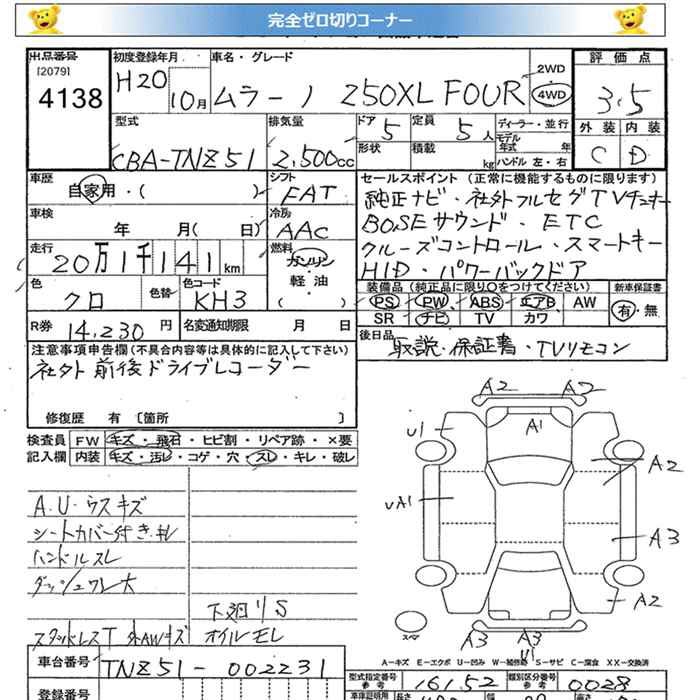 完全ゼロ切りコーナー
出品番号 初度登録年月 車名・グレード 評価点
[2079] 4138 H20 10月 ムラーノ 250XL FOUR 2WD 4WD 3.5
外装 内装
C D
型式 排気量 ドア 定員 ディーラー・並行
CBA-TNZ51 2,500cc 5 5人 モデル年式 年
形状 積載 kg ハンドル 左・右
車歴 シフト セールスポイント(正常に機能するものに限ります)
自家用・( ) FAT 純正ナビ・社外フルセグTVチューナー
車検 冷房 BOSEサウンド・ETC
年 月( 日) AAC クルーズコントロール・スマートキー
走行 燃料 HID・パワーバックドア
20万1千141km ガソリン 軽油 ( )
色 色替 色コード 装備品(純正品に限り○をつけてください) 新車保証書
クロ KH3 PS PW ABS エアB AW 有・無
SR ナビ TV カワ
R券 14,230円 名変通知期限 月 日 後日品
取説・保証書・TVリモコン
注意事項申告欄(不具合内容等は具体的に記入して下さい)
社外 前後ドライブレコーダー
修復歴 有 [箇所 ]
検査員 FW キズ・飛石・ヒビ割・リペア跡・×要
記入欄 内装 キズ・汚レ・コゲ・穴・スレ・キレ・破レ
A2 A2
A1
U1
A2
UA1
A3
A2
A3 A3
U1
スペア
A.U.ウスキズ
シートカバー付き.キレ
ハンドルスレ
ダッシュワレ大
下廻りS
スタッドレスT 外AWキズ オイルモレ
A-キズ E-エクボ U-凹み W-補修跡 S-サビ C-腐食 XX-交換済
車台番号 TNZ51-002231
型式指定番号 参考 16152 類別区分番号 参考 0028
登録番号
車庫証明用 長さ 幅 高さ